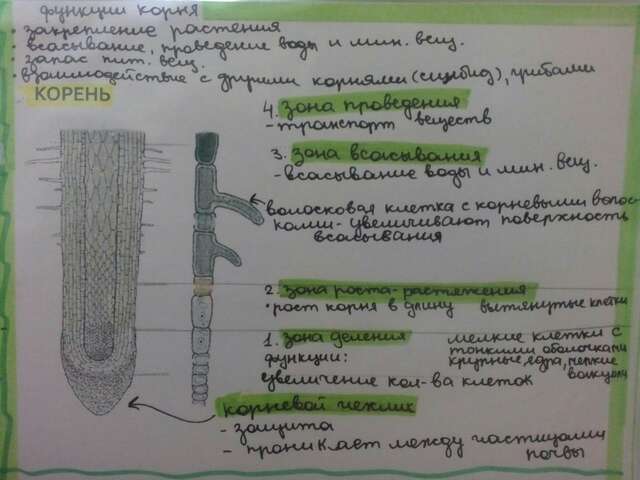 функции корня
· закрепление растения
· всасывание, проведение воды и мин. вещ.
· запас пит. вещ.
· взаимодействые с другими корнями (симбиоз), грибами
КОРЕНЬ
4. зона проведения
- транспорт веществ
3. зона всасывания
- всасывание воды и мин. вещ.
волосковая клетка с корневыми волос-
ками - увеличивают поверхность
всасывания
2. зона роста - растяжения
· рост корня в длину вытянутые клетки
1. зона деления мелкие клетки с
тонкими оболочками
функции: крупные ядра, мелкие
увеличение кол-ва клеток вакуоли
корневой чехлик
- защита
- проникает между частицами
почвы